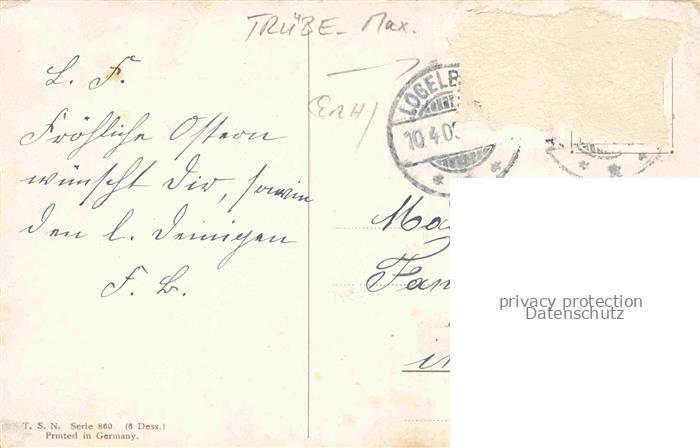 TRÜBE - Max.
L. F.
Fröhliche Ostern
wünscht Dir, sowie
den l. Deinigen
F. B.
LOGELB
10.4.0
privacy protection
Datenschutz
T. S. N. Serie 860. (6 Dess.)
Printed in Germany.